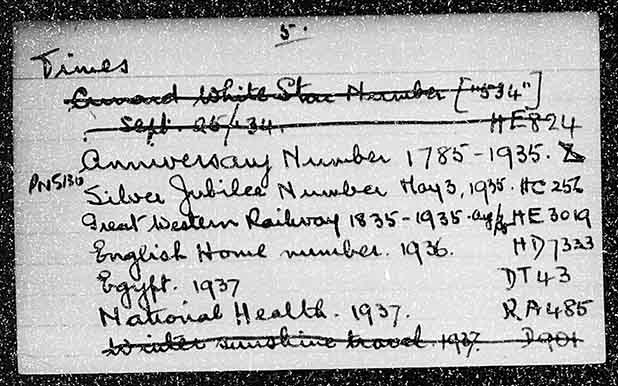 5.
Times
Cunard White Star Number ["534"]
Sept. 26/34. HE824
Anniversary Number 1785-1935.
PN5130
Silver Jubilee Number May 3, 1935. HC256
Great Western Railway 1835-1935. HE3019
English Home number. 1936. HD7333
Egypt. 1937 DT43
National Health. 1937. RA485
Winter sunshine travel. 1937. D901